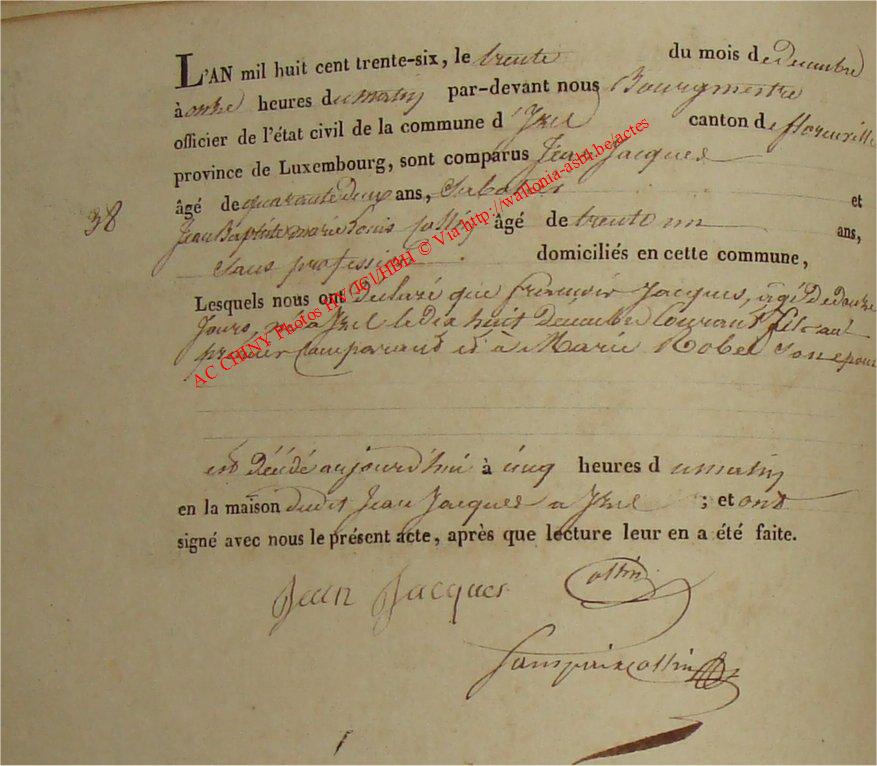 L'AN mil huit cent trente-six, le trente du mois de decembre
à onze heures du matin par-devant nous Bourgmestre
officier de l'état civil de la commune d'Izel canton de florenville
province de Luxembourg, sont comparus Jean Jacques
38
âgé de quarante deux ans, et
Jean Baptiste marie Louis Collin âgé de trente un ans,
Sans profession domiciliés en cette commune,
Lesquels nous ont Declaré que Jacques, agé De douze
Jours, né a Izel le dix huit Decembre Courant, fils au
premier Comparant et a Marie Robet Son epouse
est Décédé aujourd'hui à cinq heures du matin
en la maison dudit Jean Jacques a Izel ; et ont
signé avec nous le présent acte, après que lecture leur en a été faite.
Jean Jacques Collin
AC CHINY Photos HV/JGL/HBH © Via http://wallonia-asbl.be/actes